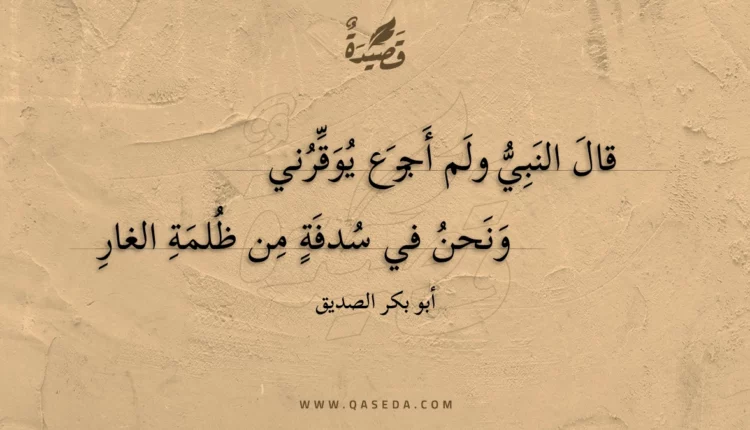 قَصِيْدَةٌ
قالَ النَبِيُّ ولَم أَجزَع يُوَقِّرُني
وَنَحنُ في سُدفَةٍ مِن ظُلمَةِ الغارِ
أبو بكر الصديق
WWW.QASEDA.COM